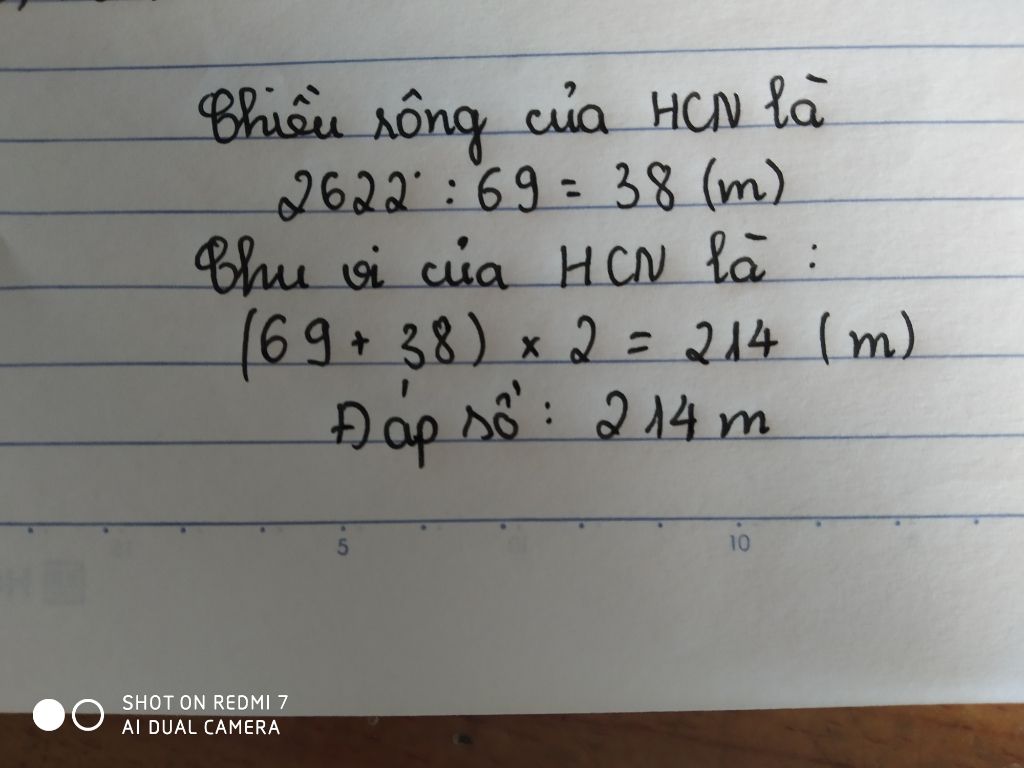 Chiều rông của HCN là
2622 : 69 = 38 (m)
Chu vi của HCN là :
(69 + 38) × 2 = 214 (m)
Đáp số : 214 m
5 10
SHOT ON REDMI 7
AI DUAL CAMERA